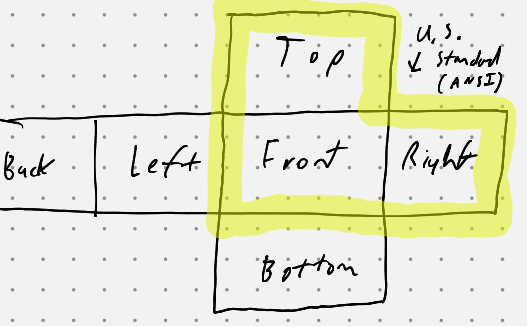 Top
U.S.
↓ Standard
(ANSI)
Back Left Front Right
Bottom